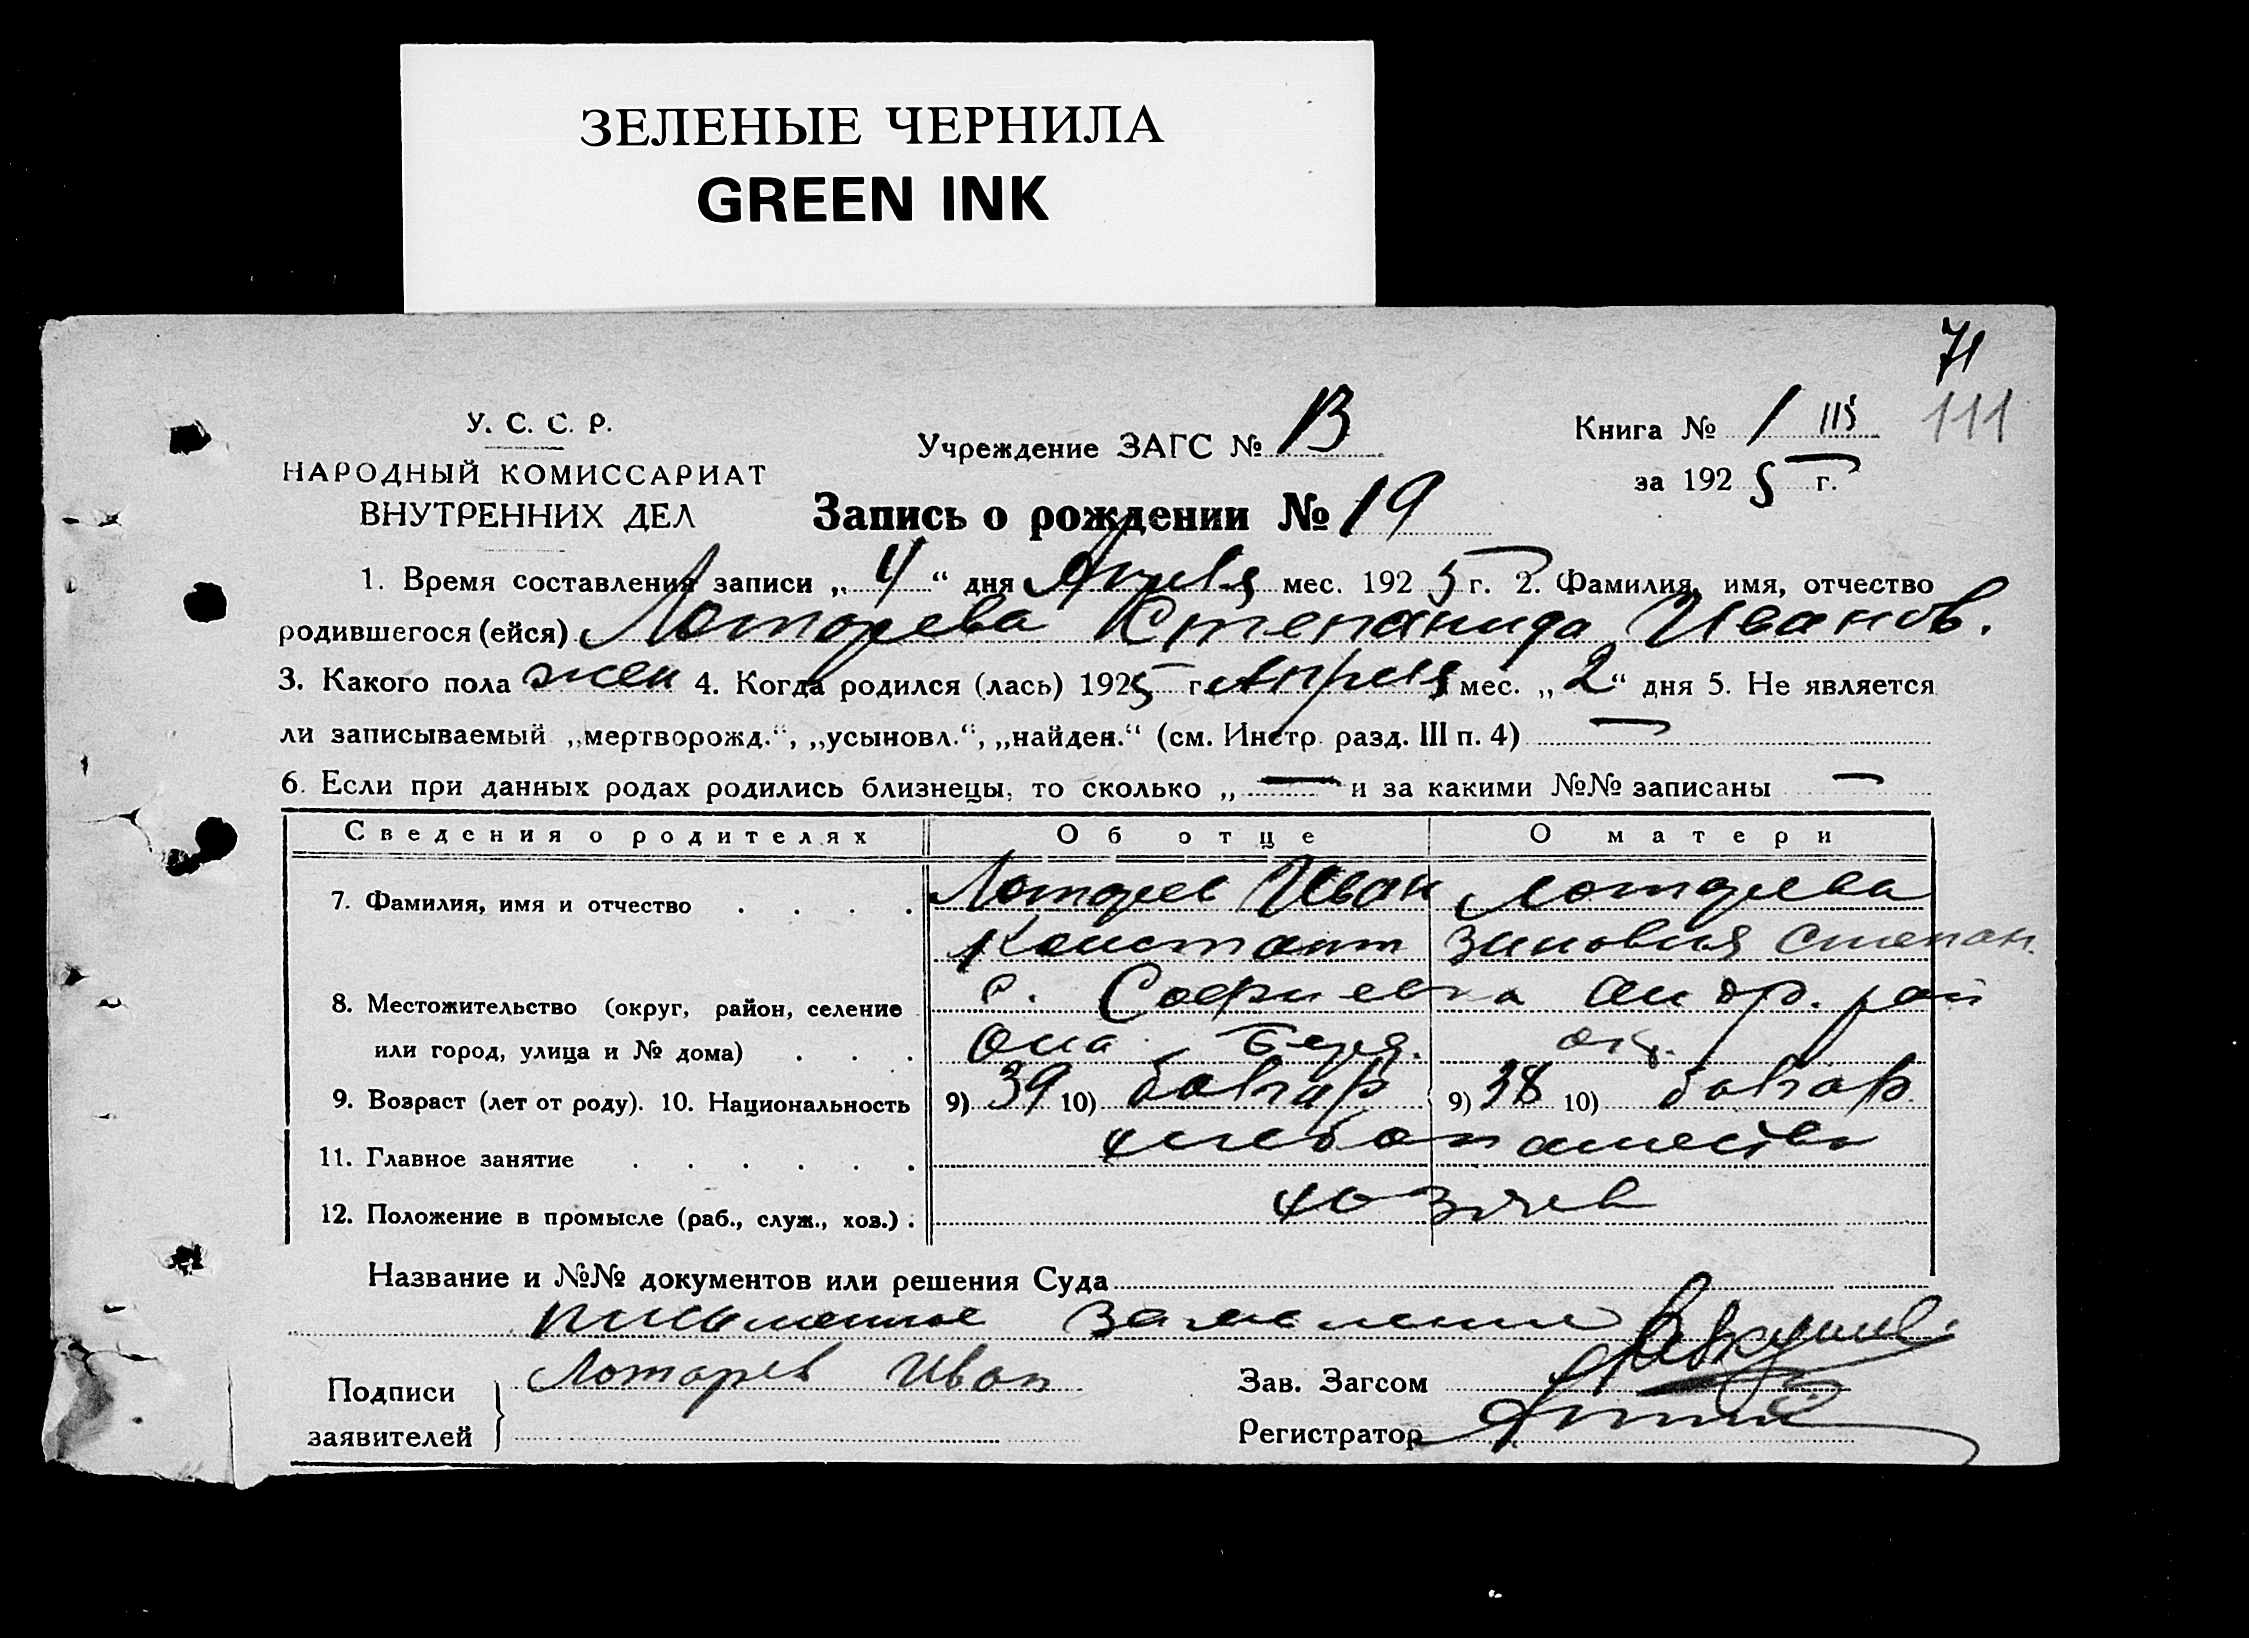 ЗЕЛЕНЫЕ ЧЕРНИЛА
GREEN INK
71
111
У. С. С. Р.
НАРОДНЫЙ КОМИССАРИАТ
ВНУТРЕННИХ ДЕЛ
Учреждение ЗАГС № В
Книга № 1 115
за 1925 г.
Запись о рождении № 19
1. Время составления записи „4“ дня Апреля мес. 1925 г. 2. Фамилия, имя, отчество
родившегося (ейся) Лоторева Степанида Иванов.
3. Какого пола жен 4. Когда родился (лась) 1925 г. Апреля мес. „2“ дня 5. Не является
ли записываемый „мертворожд.“, „усыновл.“, „найден.“ (см. Инстр. разд. III п. 4) —
6. Если при данных родах родились близнецы, то сколько „ — и за какими №№ записаны —
Сведения о родителях Об отце О матери
7. Фамилия, имя и отчество . . . . Лоторев Иван Лоторева
Констант Зиновия Степан.
8. Местожительство (округ, район, селение с. Софиевка Андр. рай
или город, улица и № дома) . . . она Берд. окр.
9. Возраст (лет от роду). 10. Национальность 9) 39 10) болгар 9) 38 10) болгар
11. Главное занятие . . . . . . хлебопашество
12. Положение в промысле (раб., служ., хоз.) : хозяев
Название и №№ документов или решения Суда
письменное заявление
Подписи
заявителей
Лоторев Иван
Зав. Загсом
Регистратор